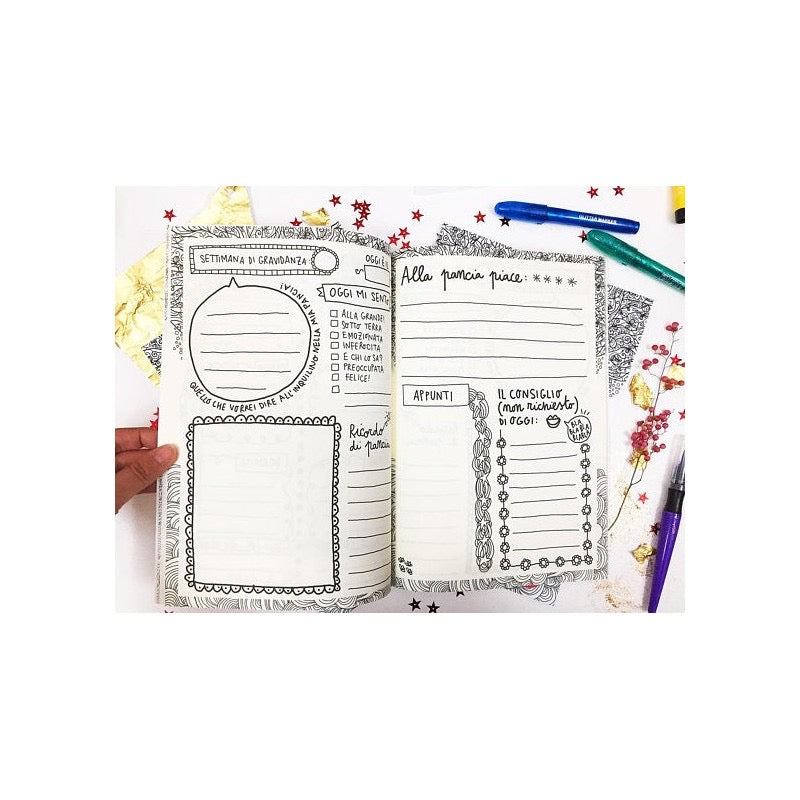 SETTIMANA DI GRAVIDANZA
OGGI È
QUELLO CHE VORREI DIRE ALL'INQUILINO NELLA MIA PANCIA!
OGGI MI SENTO
ALLA GRANDE!
SOTTO TERRA
EMOZIONATA
INFEROCITA
E CHI LO SA?
PREOCCUPATA
FELICE!
Ricordo
di pancia
Alla pancia piace:
APPUNTI
IL CONSIGLIO
(non richiesto)
DI OGGI:
BLA
BLABLA
BLABLA
GLITTER MARKER